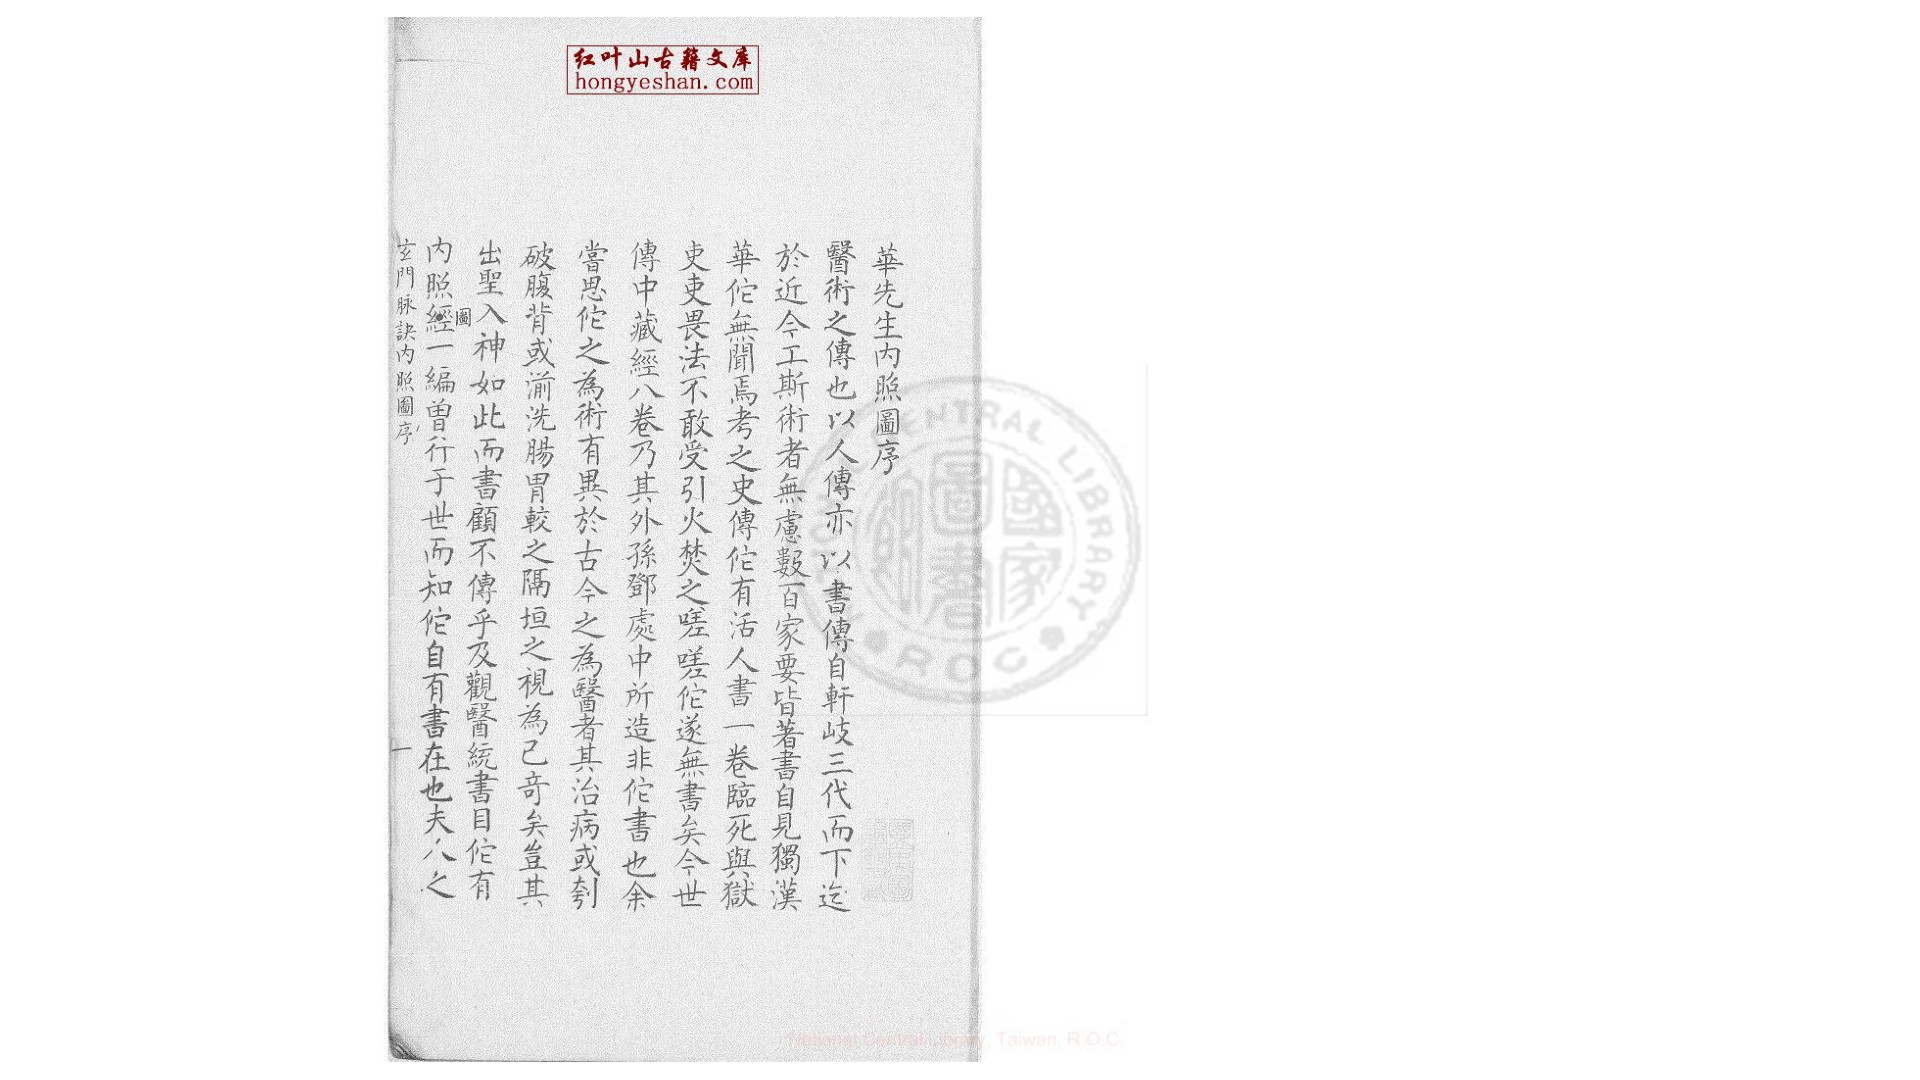 红叶山古籍文库
hongyeshan.com
華先生内照圖序
醫術之傳也以人傳亦以書傳自軒岐三代而下迄
於近今工斯術者無慮數百家要皆著書自見獨漢
華佗無聞焉考之史傳佗有活人書一卷臨死與獄
吏吏畏法不敢受引火焚之嗟嗟佗遂無書矣今世
傳中藏經八卷乃其外孫鄧處中所造非佗書也余
嘗思佗之為術有異於古今之為醫者其治病或刳
破腹背或湔洗腸胃較之隔垣之視為已竒矣豈其
出聖入神如此而書顧不傳乎及觀醫統書目佗有
内照經一編曽行于世而知佗自有書在也夫人之
圖
玄門脉訣内照圖序
一
CENTRAL LIBRARY
R.O.C
國家圖書館
National Central Library, Taiwan, R.O.C.